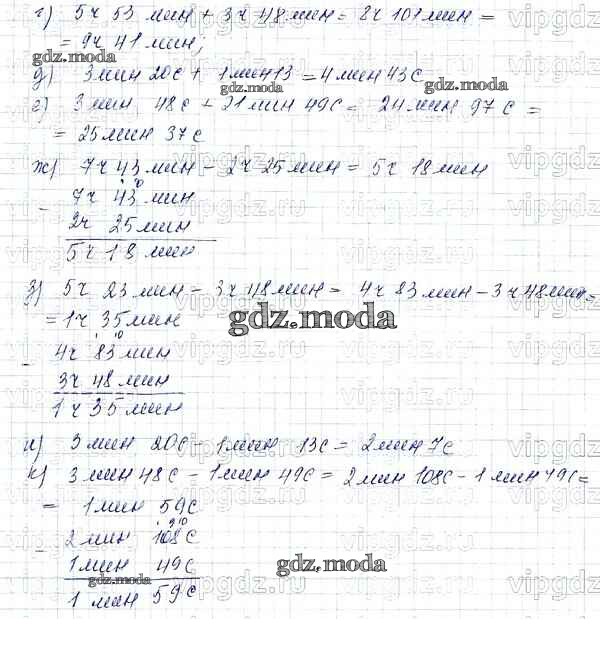 г) 5ч 53 мин + 3ч 48 мин = 8ч 101 мин =
= 9ч 41 мин;
gdz.moda
д) 3 мин 20с + 1 мин 13 = 4 мин 43с
г) 3 мин 48с + 21 мин 49с = 24 мин 97с =
= 25 мин 37с
ж) 7ч 43 мин - 2ч 25 мин = 5ч 18 мин
- 7ч 43 мин
2ч 25 мин
5ч 18 мин
з) 5ч 23 мин - 3ч 48 мин = 4ч 83 мин - 3ч 48 мин =
= 1ч 35 мин
gdz.moda
- 4ч 83 мин
3ч 48 мин
1ч 35 мин
и) 3 мин 20с - 1 мин 13с = 2 мин 7с
к) 3 мин 48с - 1 мин 49с = 2 мин 108с - 1 мин 49с =
= 1 мин 59с
- 2 мин 108с
1 мин 49с
gdz.moda
gdz.moda
1 мин 59с